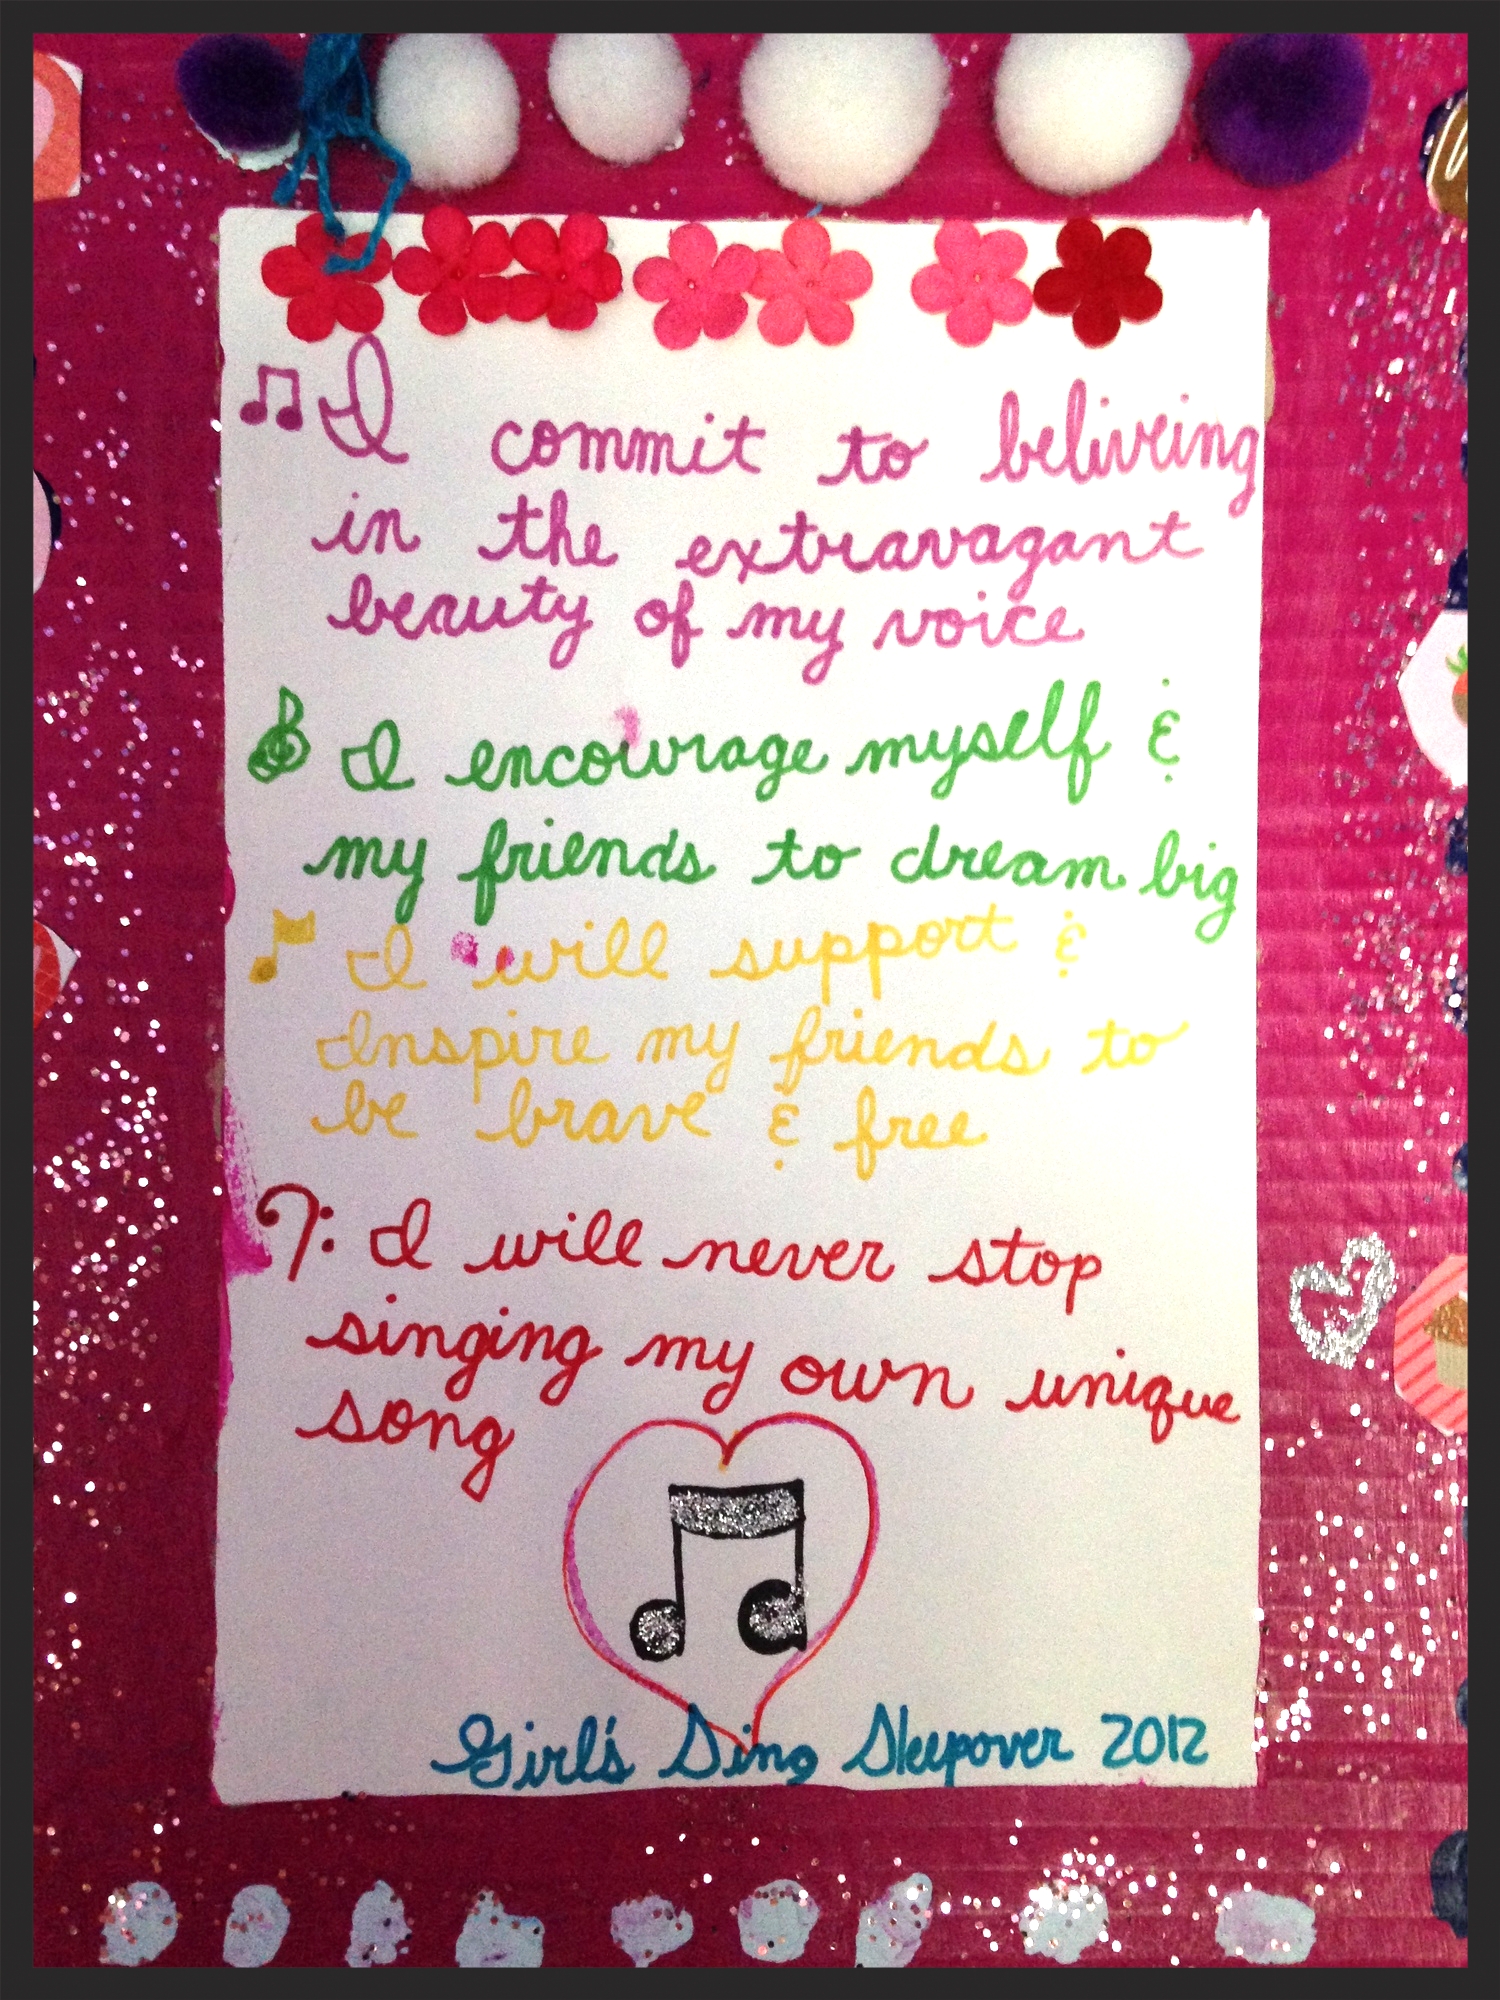 I commit to beliveing
in the extravagant
beauty of my voice
I encourage myself &
my friends to dream big
I will support &
Inspire my friends to
be brave & free
I will never stop
singing my own unique
song
Girl's Sing Sleepover 2012